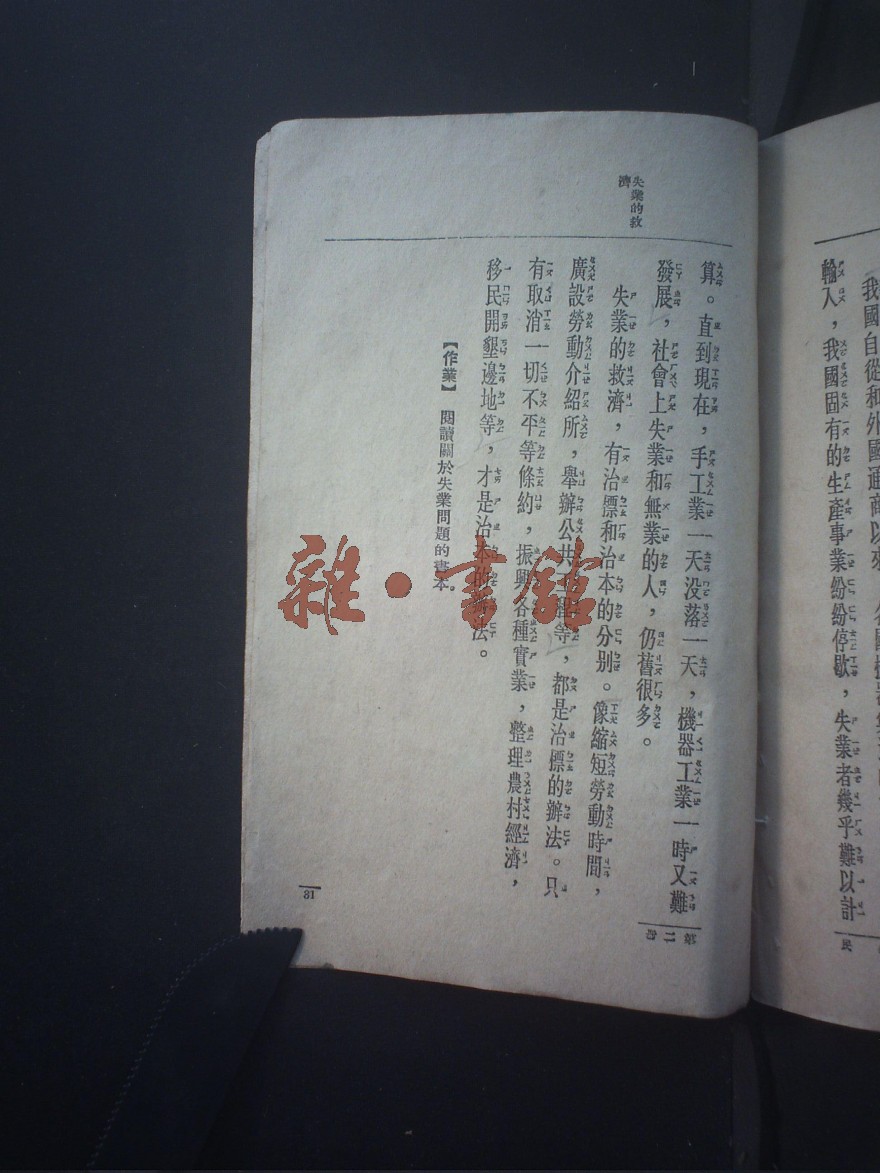 我國自從和外國通商以來
輸入，我國固有的生產事業紛紛停歇，失業者幾乎難以計
民
失業的救
濟
算。直到現在，手工業一天没落一天，機器工業一時又難
發展，社會上失業和無業的人，仍舊很多。
失業的救濟，有治標和治本的分别。像縮短勞動時間，
廣設勞動介紹所，舉辦公共工程等，都是治標的辦法。只
有取消一切不平等條約，振興各種實業，整理農村經濟，
移民開墾邊地等，才是治本的辦法。
【作業】 閱讀關於失業問題的書本。
第二册
31
雜·書館